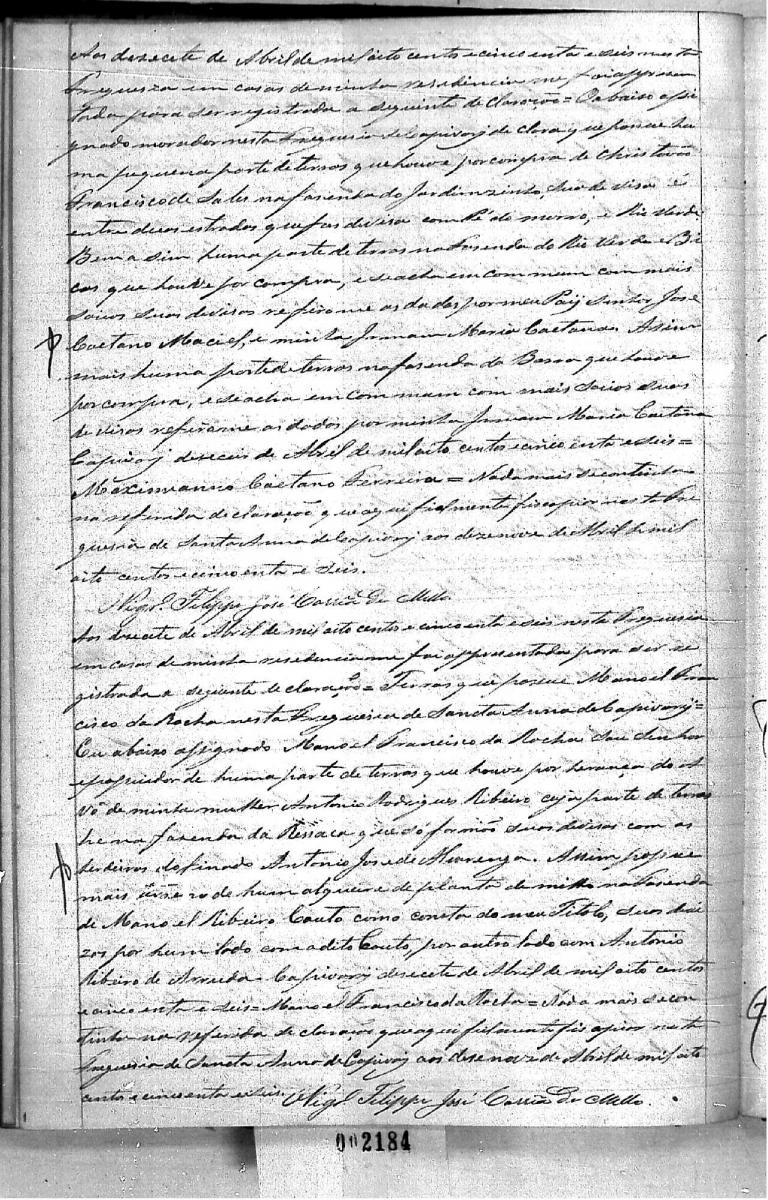 Aos desecete de Abril de mil oito centos e cinco enta e seis nesta
Freguesia em casas de minha residencia me foi appresen
tada para ser registrada a seguinte declaração = O abaixo assi
gnado morador nesta Freguesia de Capivary declara que possue hu
ma pequena parte de terras que houve por compra de Christovão
Francisco de Sales na fasenda do Jardimzinho, sua devisa é
entre duas estradas que fas devisa com Pé do morro, e Rio Verde
Bem a sim huma parte de terras na Fasenda do Rio Verde e Bi
cas que houve por compra, e se acha em commum com mais
socios suas devisas refirome as dadas por meu Pay Senhor José
Caetano Maciel, e minha Irmam Maria Caetana. Assim
mais huma parte de terras na fasenda da Barra que houve
por compra, e se acha em commum com mais socios suas
devisas refirome as dadas por minha Irmam Maria Caetana
Capivary deseceis de Abril de mil oito centos e cinco enta e seis =
Maximianno Caetano Ferreira = Nada mais se continha
na referida declaração que aqui fielmente fis copiar nesta Fre
guesia de Santa Anna de Capivary aos dezenove de Abril de mil
oito centos e cinco enta e seis.
Vigr.º Filippe José Corrêa de Mello
Aos desecete de Abril de mil oito centos e cinco enta e seis nesta Freguesia
em casas de minha residencia me foi appresentada para ser re
gistrada a seguinte declaração = Terras que possue Manoel Fran
cisco da Rocha nesta Freguesia de Sancta Anna de Capivary =
Eu abaixo assignado Manoel Francisco da Rocha sou Senhor
e possuidor de huma parte de terras que houve por herança do A
vô de minha mulher Antonio Rodrigues Ribeiro cuja parte de terras
he na fazenda da Ressaca que só formão suas devisas com os
herdeiros do finado Antonio Jose de Alvarenga. Assim possue
mais de hum alqueire de planta de milho na Fasenda
de Manoel Ribeiro Couto como consta do meu Titolo, suas devi
zas por hum lado com o dito Couto, por outro lado com Antonio
Ribeiro de Arruda. Capivary desecete de Abril de mil oito centos
e cinco enta e seis = Manoel Francisco da Rocha = Nada mais se con
tinha na referida declaração que aqui fielmente fis copiar nesta
Freguesia de Sancta Anna de Capivary aos desenove de Abril de mil oito
centos e cinco enta e seis. Vigr.º Filippe José Corrêa de Mello.
002184